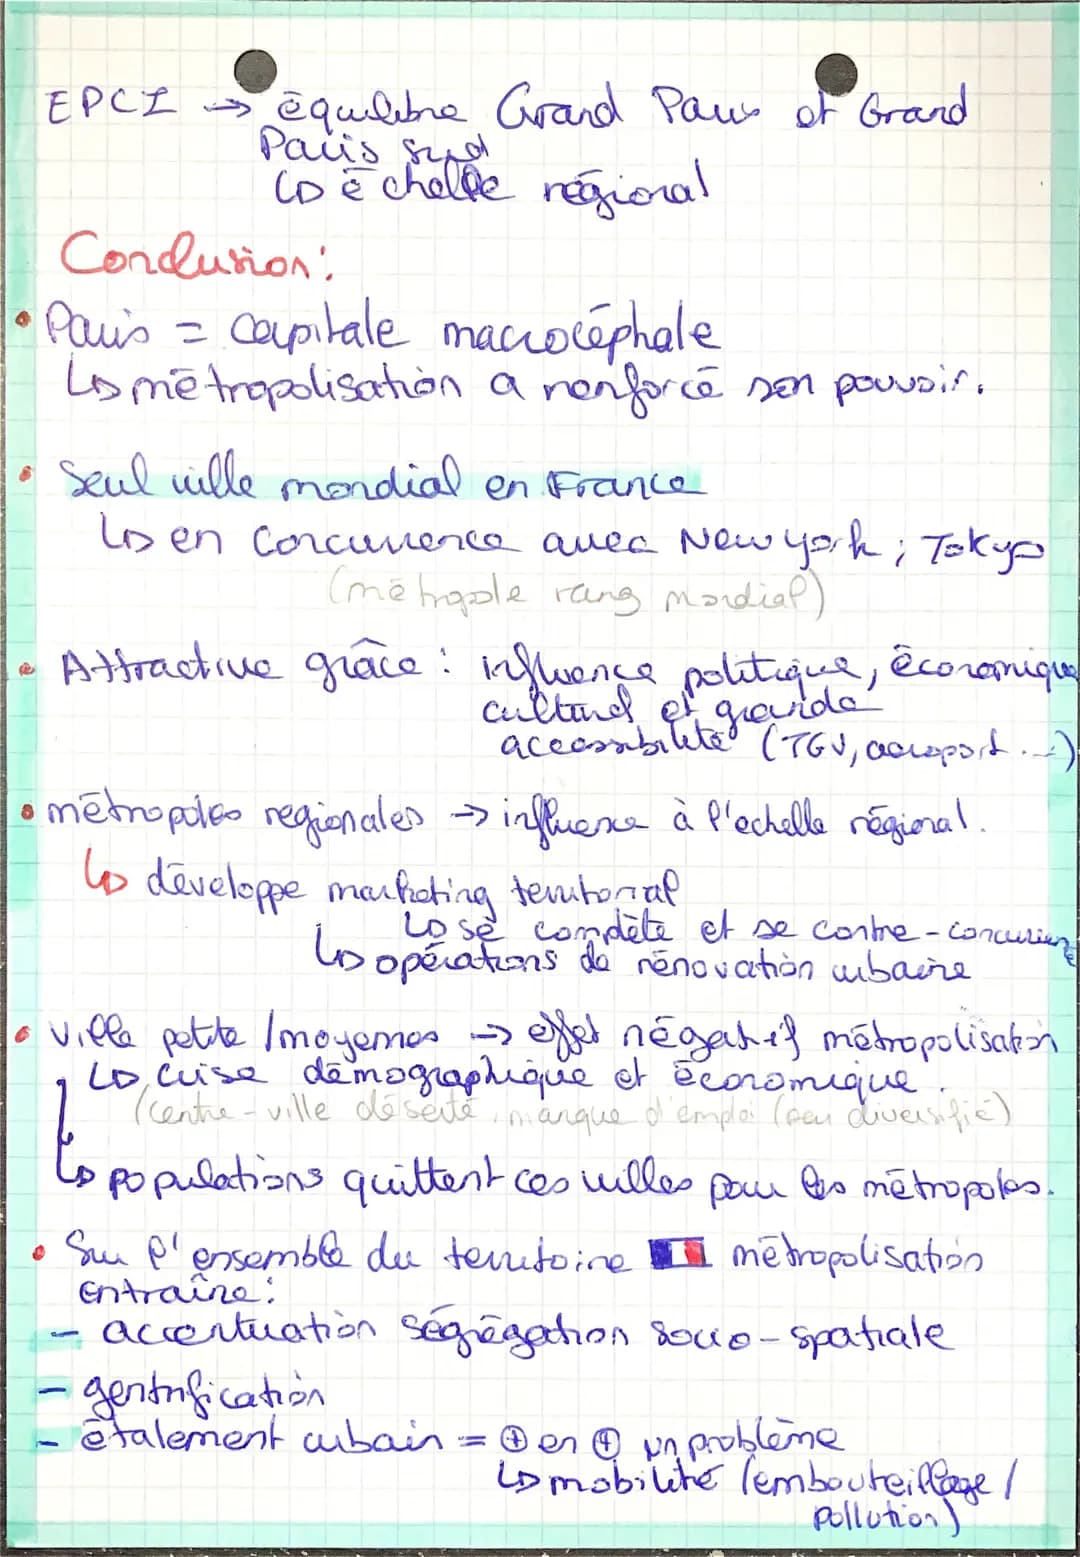 EPCI → équilibre Grand Paris et Grand
Paris sud
↳ échelle régional
Conclusion :
• Paris = capitale macrocéphale
↳ métropolisation a renforcé son pouvoir.
• Seul ville mondial en France
↳ en concurrence avec New york ; Tokyo
(métropole rang mondial)
• Attractive grâce : influence politique, économique
culturel et grande
accessibilité (TGV, aéroport ...)
• métropoles regionales → influence à l'echelle régional.
↳ développe marketing territorial
↳ se complète et se contre-concurrence
↳ opérations de rénovation urbaine
• ville petite / moyennes → effet négatif métropolisation
↳ crise démographique et économique.
(centre-ville déserté, manque d'emploi (peu diversifié)
↳ populations quittent ces villes pour les métropoles.
• Sur l'ensemble du territoire métropolisation
entraîne :
- accentuation ségrégation socio-spatiale
- gentrification
- étalement urbain = ⊕ en ⊕ un problème
↳ mobilité (embouteillage /
pollution)